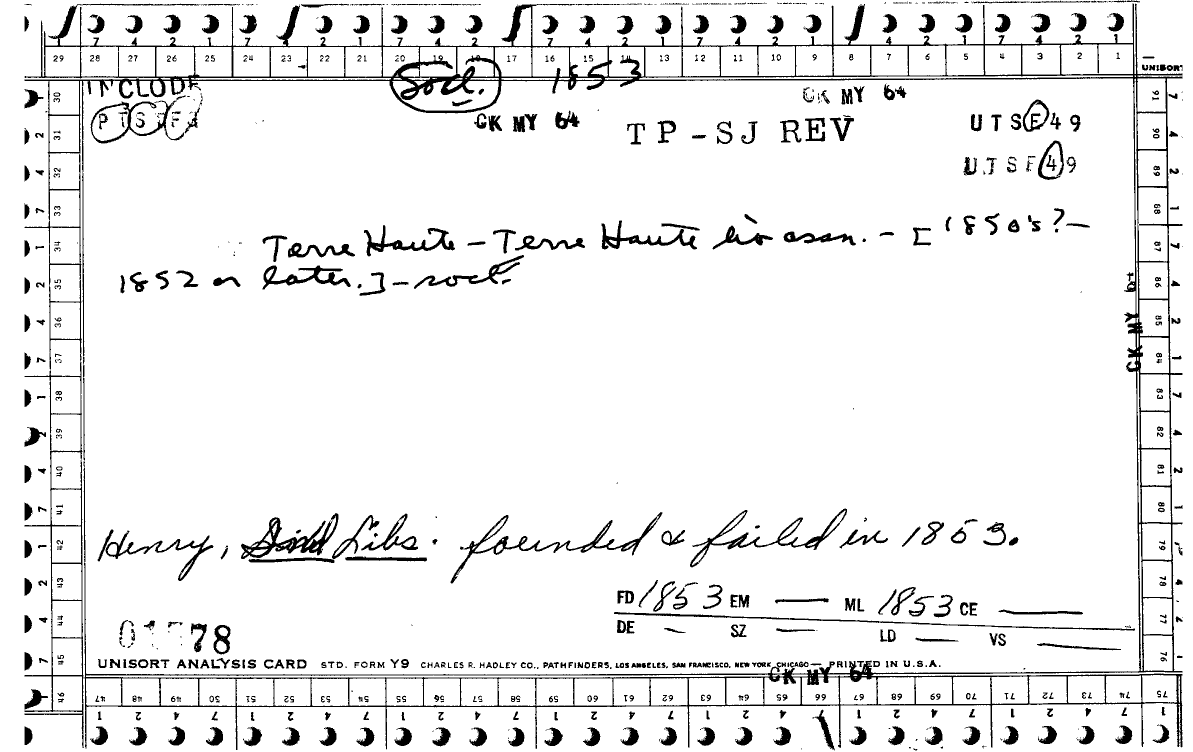 7 4 2 1 7 4 2 1 7 4 2 1 7 4 2 1 7 4 2 1 7 4 2 1 7 4 2 1
29 28 27 26 25 24 23 22 21 20 19 18 17 16 15 14 13 12 11 10 9 8 7 6 5 4 3 2 1
UNISORT
Socl. 1853
INCLUDE
CK MY 64
CK MY 64
TP-SJ REV
UTSE49
UTSF49
Terre Haute - Terre Haute lib assn. - [1850's? -
1852 or later.] - socl.
CK MY 64
Henry, Libs. founded & failed in 1853.
FD 1853 EM — ML 1853 CE —
DE — SZ — LD — VS —
78
UNISORT ANALYSIS CARD STD. FORM Y9 CHARLES R. HADLEY CO., PATHFINDERS, LOS ANGELES, SAN FRANCISCO, NEW YORK, CHICAGO — PRINTED IN U.S.A.
CK MY 64
30 31 32 33 34 35 36 37 38 39 40 41 42 43 44 45 46
91 90 89 88 87 86 85 84 83 82 81 80 79 78 77 76 75
47 48 49 50 51 52 53 54 55 56 57 58 59 60 61 62 63 64 65 66 67 68 69 70 71 72 73 74
1 2 4 7 1 2 4 7 1 2 4 7 1 2 4 7 1 2 4 7 1 2 4 7 1 2 4 7